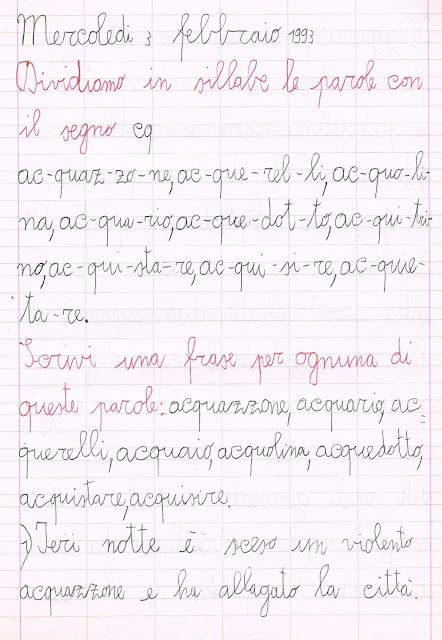 Mercoledì 3 febbraio 1993
Dividiamo in sillabe le parole con
il segno cq
ac-quaz-zo-ne, ac-que-rel-li, ac-quo-li-
na, ac-qua-rio, ac-que-dot-to, ac-qui-tri-
no, ac-qui-sta-re, ac-qui-si-re, ac-que-
ta-re.
Scrivi una frase per ognuna di
queste parole: acquazzone, acquario, ac=
querelli, acquaio, acquolina, acquedotto,
acquistare, acquisire.
1) Ieri notte è sceso un violento
acquazzone e ha allagato la città.